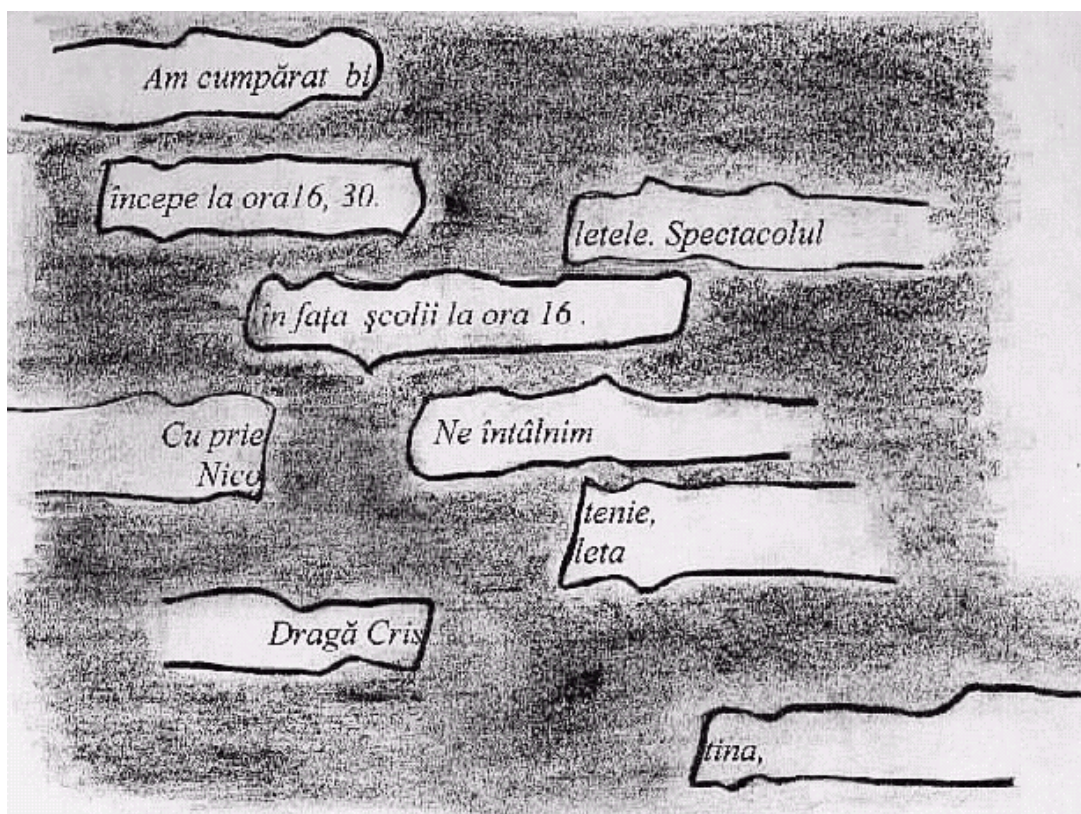 Am cumpărat bi
începe la ora16, 30.
letele. Spectacolul
în faţa şcolii la ora 16 .
Cu prie
Nico
Ne întâlnim
tenie,
leta
Dragă Cris
tina,